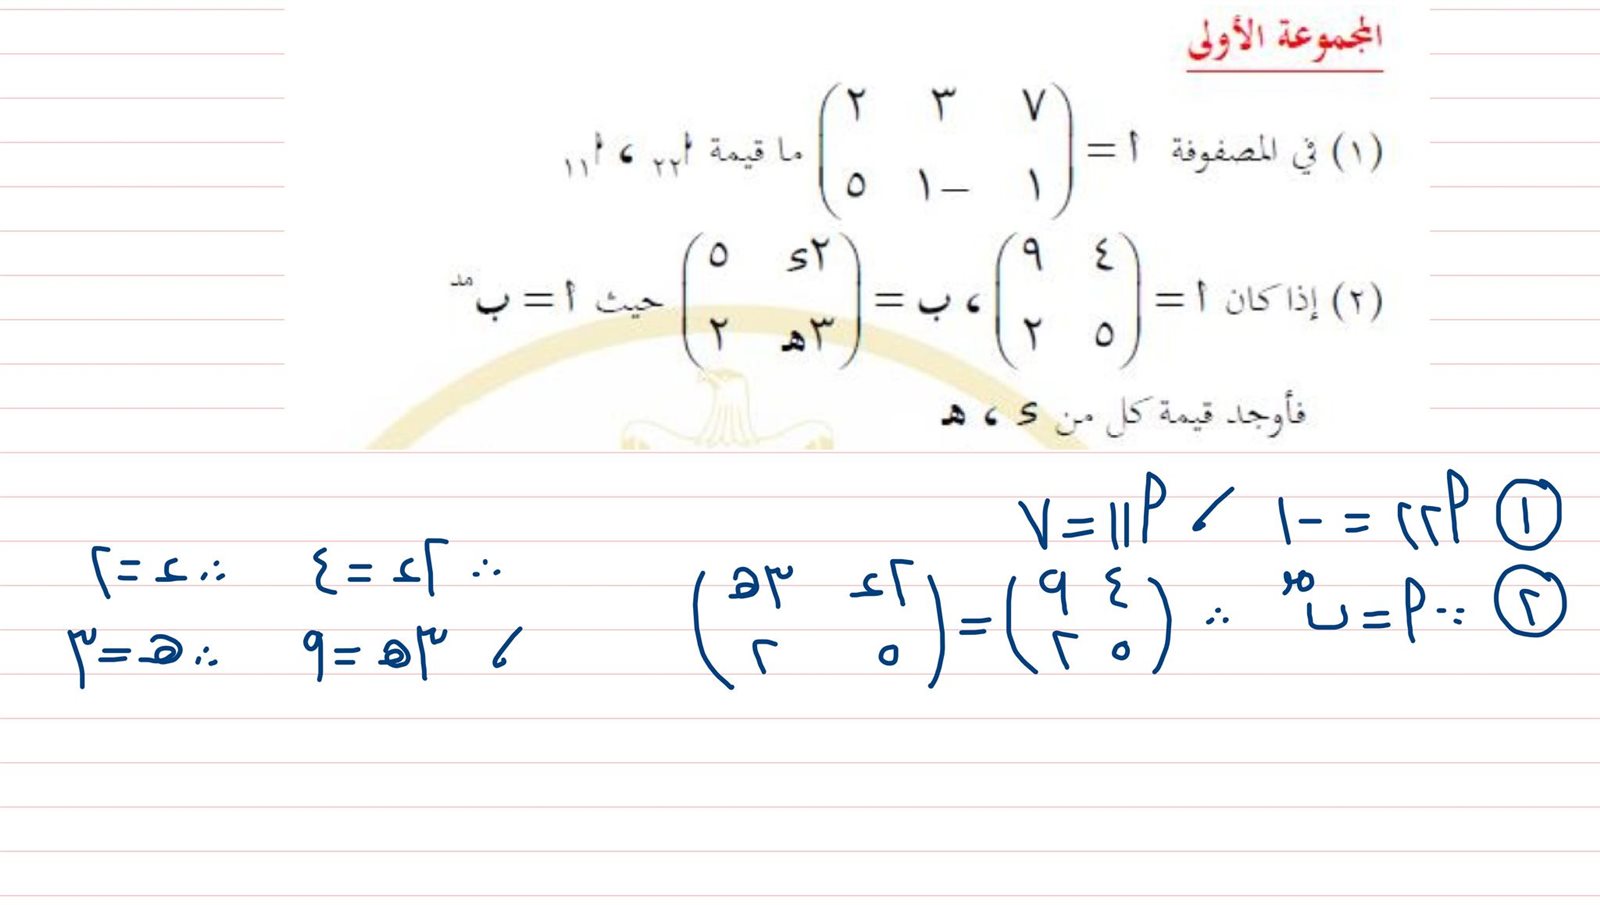 المجموعة الأولى
(١) في المصفوفة أ = (٧ ٣ ٢
١ -١ ٥) ما قيمة أ٢٢ ، أ١١
(٢) إذا كان أ = (٤ ٩
٥ ٢) ، ب = (٢ء ٥
٣هـ ٢) حيث أ = ب مد
فأوجد قيمة كل من ء ، هـ
① أ٢٢ = -١ ، أ١١ = ٧
② ∵ أ = ب مد ∴ (٤ ٩
٥ ٢) = (٢ء ٣هـ
٥ ٢)
∴ ٢ء = ٤ ∴ ء = ٢
، ٣هـ = ٩ ∴ هـ = ٣